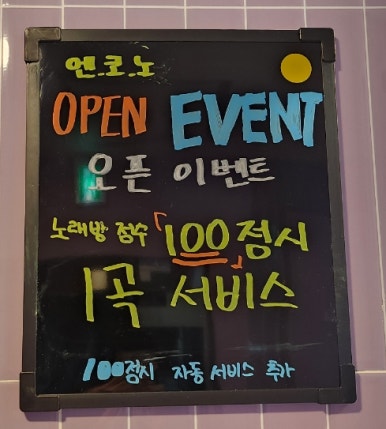 엔.코.노
OPEN EVENT
오픈 이벤트
노래방 점수 「100점시」
1곡 서비스
100점시 자동 서비스 추가